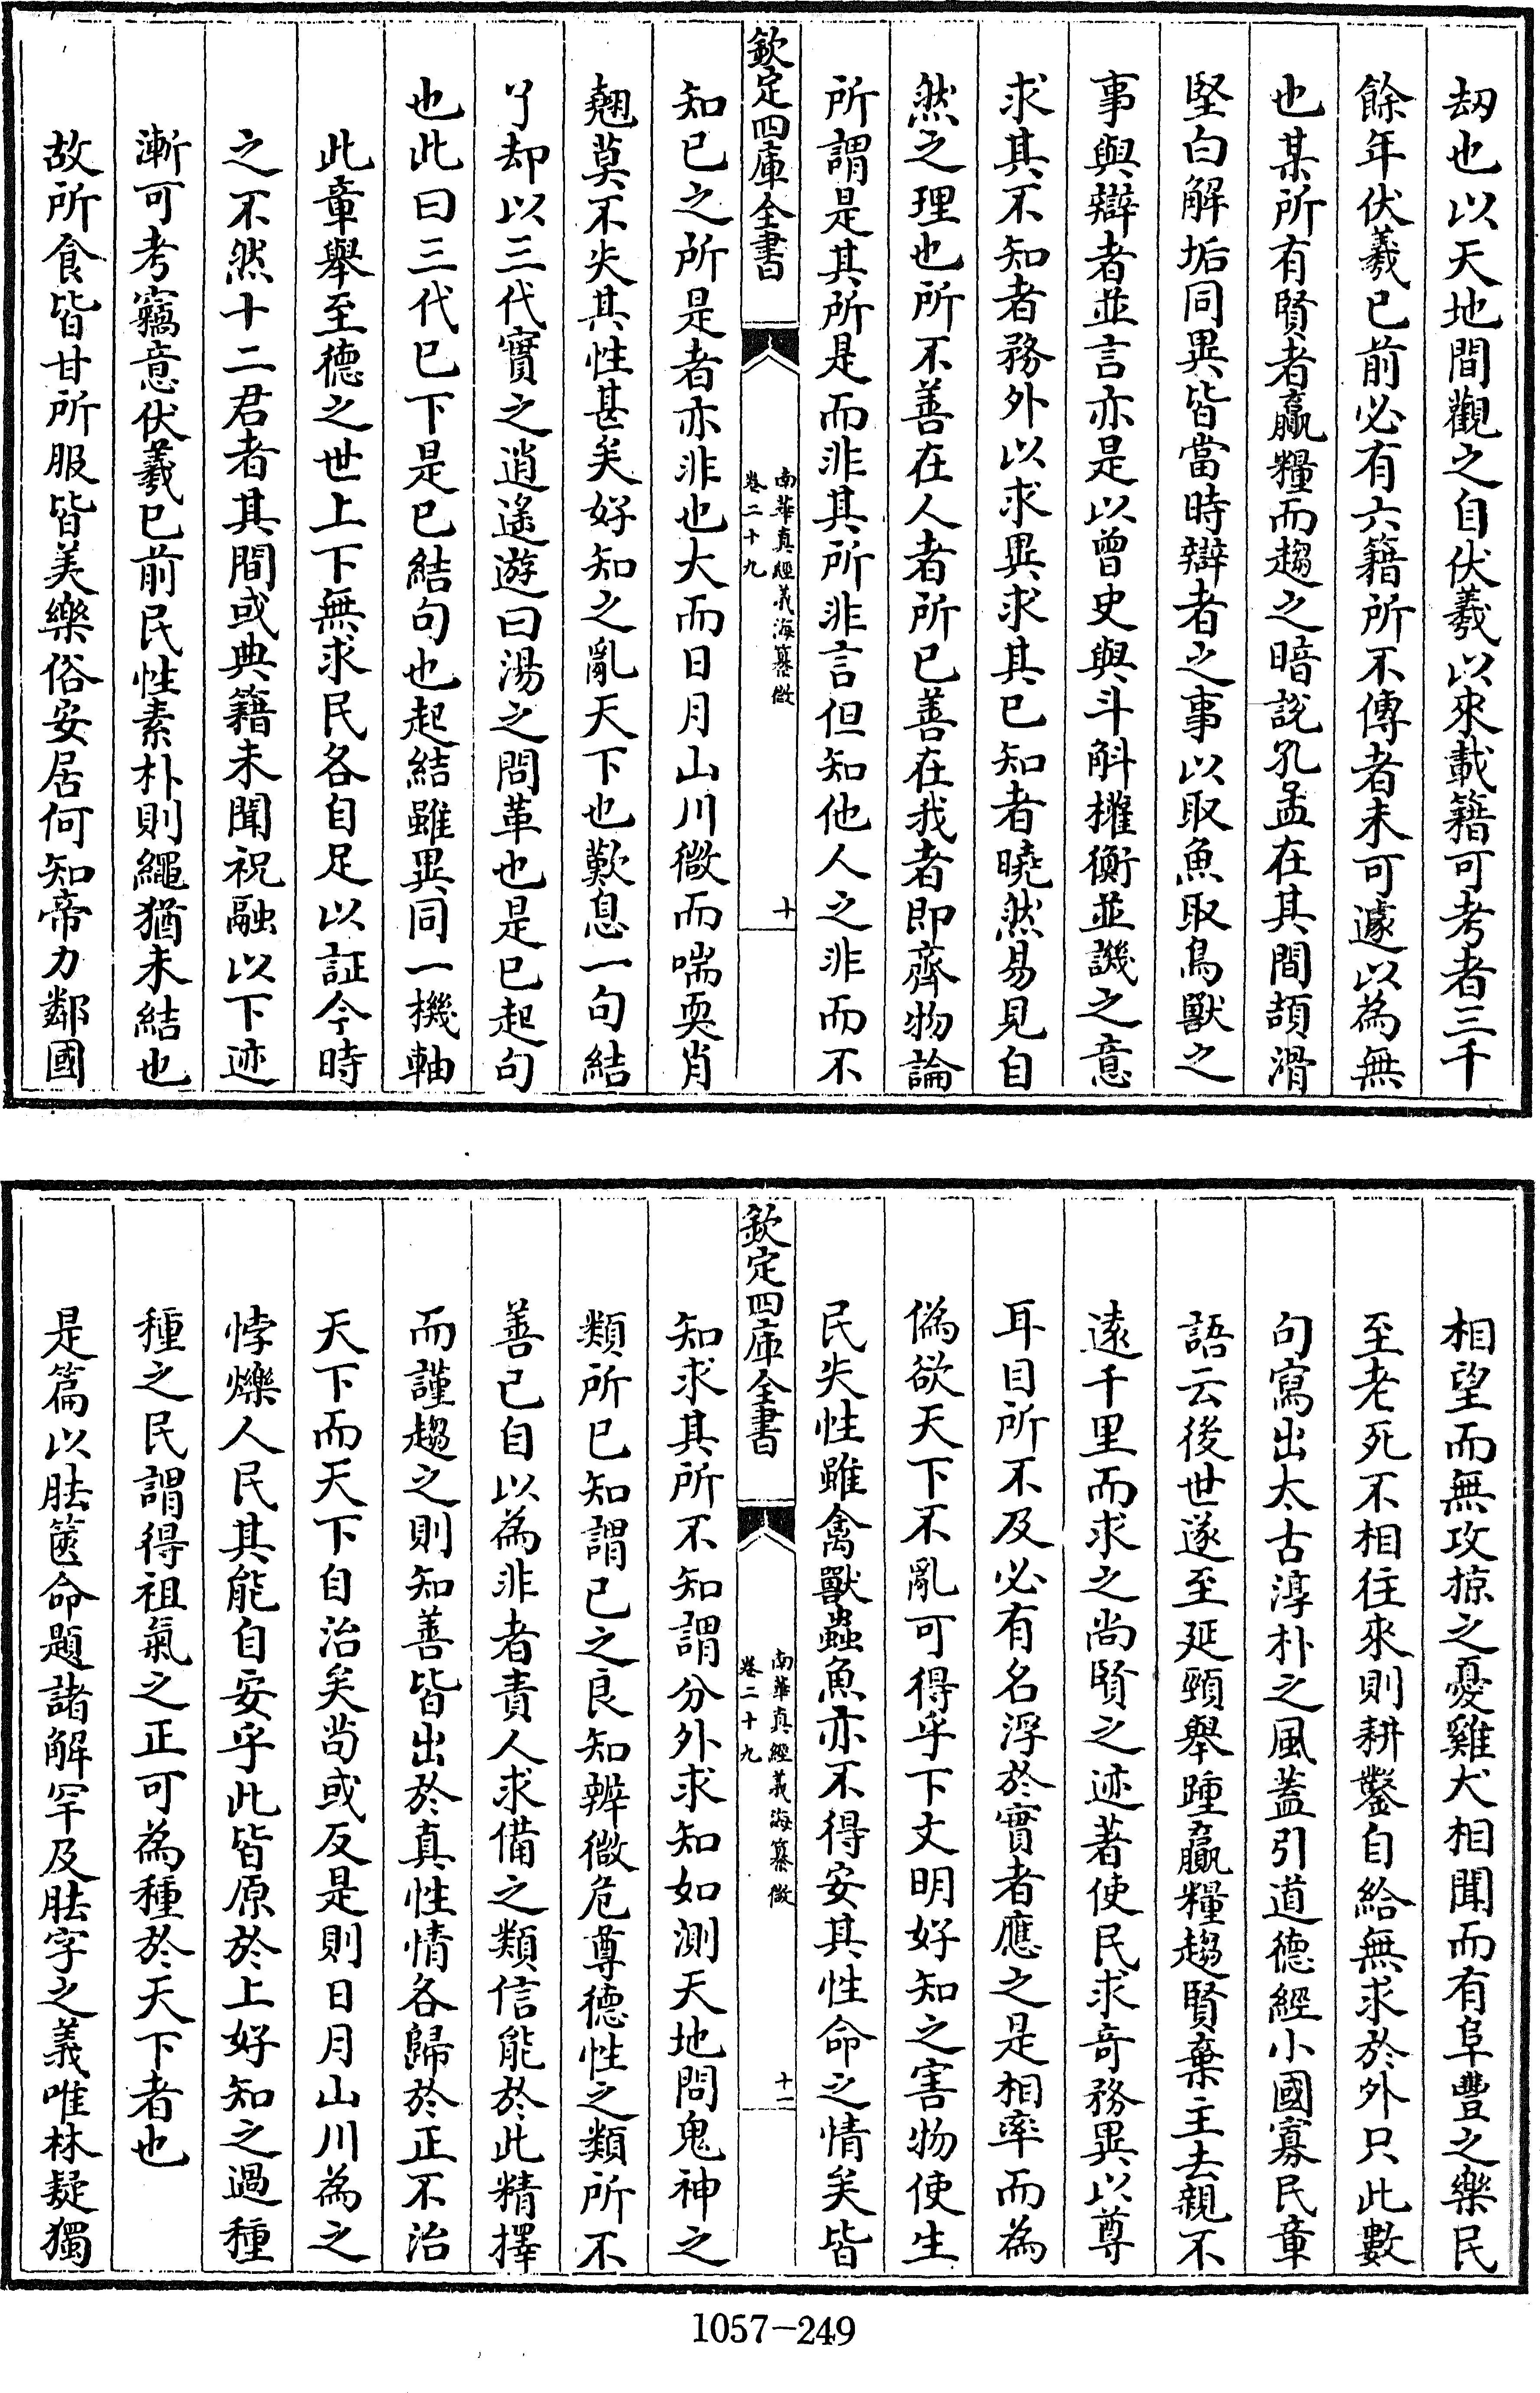 刼也以天地間觀之自伏羲以來載籍可考者三千
餘年伏羲已前必有六籍所不傳者未可遽以為無
也某所有賢者贏糧而趨之暗說孔孟在其間頡滑
堅白解垢同異皆當時辯者之事以取魚取鳥獸之
事與辯者並言亦是以曾史與斗斛權衡並譏之意
求其不知者務外以求異求其已知者曉然易見自
然之理也所不善在人者所已善在我者即齊物論
所謂是其所是而非其所非言但知他人之非而不
欽定四庫全書
南華真經義海纂微
卷二十九
十
知已之所是者亦非也大而日月山川微而喘耎肖
翹莫不失其性甚矣好知之亂天下也歎息一句結
了却以三代實之逍遙遊曰湯之問革也是已起句
也此曰三代已下是已結句也起結雖異同一機軸
此章舉至德之世上下無求民各自足以証今時
之不然十二君者其間或典籍未聞祝融以下迹
漸可考竊意伏羲已前民性素朴則繩猶未結也
故所食皆甘所服皆美樂俗安居何知帝力鄰國
相望而無攻掠之憂雞犬相聞而有阜豐之樂民
至老死不相往來則耕鑿自給無求於外只此數
句寫出太古淳朴之風蓋引道德經小國寡民章
語云後世遂至延頸舉踵贏糧趨賢棄主去親不
遠千里而求之尚賢之迹著使民求奇務異以尊
耳目所不及必有名浮於實者應之是相率而為
偽欲天下不亂可得乎下文明好知之害物使生
民失性雖禽獸蟲魚亦不得安其性命之情矣皆
欽定四庫全書
南華真經義海纂微
卷二十九
十一
知求其所不知謂分外求知如測天地問鬼神之
類所已知謂已之良知辨微危尊德性之類所不
善已自以為非者責人求備之類信能於此精擇
而謹趨之則知善皆出於真性情各歸於正不治
天下而天下自治矣苟或反是則日月山川為之
悖爍人民其能自安乎此皆原於上好知之過種
種之民謂得祖氣之正可為種於天下者也
是篇以胠篋命題諸解罕及胠字之義唯林疑獨
1057-249